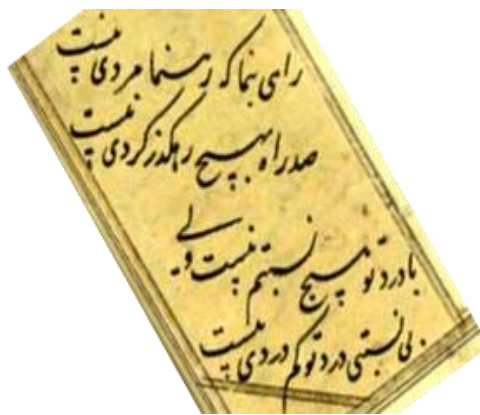 راهی بنما که رهنما مردی نیست
صد راه بهیچ رهگذر گردی نیست
با درد تو هیچ نسبتم نیست ولی
بی نسبتی درد تو کم دردی نیست